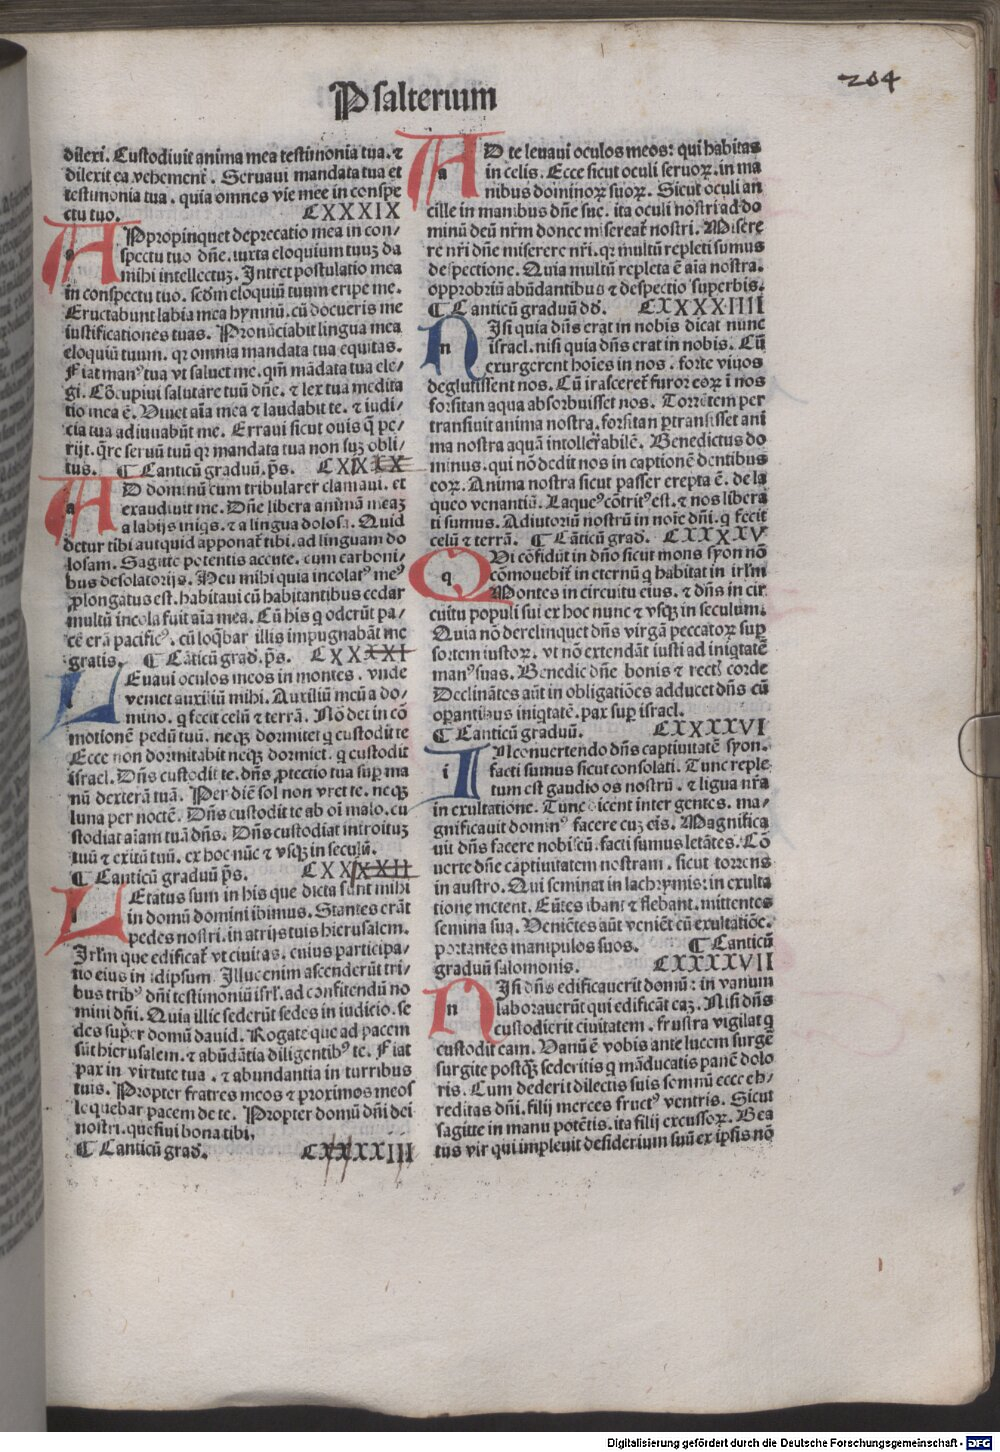 204
Psalterium
dilexi. Custodiuit anima mea testimonia tua. ⁊
dilexit ea vehement̄. Seruaui mandata tua et
testimonia tua. quia omnes vie mee in conspe
ctu tuo. CXXXIX
APpropinquet deprecatio mea in con/
spectu tuo dn̄e. iuxta eloquium tuuꝫ da
mihi intellectuꝫ. Intret postulatio mea
in conspectu tuo. secdm eloquiū tuum eripe me.
Eructabunt labia mea hymnū. cū docueris me
iustificationes tuas. Pronūciabit lingua mea
eloquiū tuum. qꝛ omnia mandata tua equitas.
Fiat manꝰ tua vt saluet me. qm̄ mādata tua ele/
gi. Cōcupiui salutare tuū dn̄e. ⁊ lex tua medita
tio mea ē. Viuet aīa mea ⁊ laudabit te. ⁊ iudi/
cia tua adiuuabūt me. Erraui sicut ouis q̄ pe/
rijt. q̄re seruū tuū qꝛ mandata tua non suꝫ obli/
tus. ¶ Canticū graduū. p̄s. CXIXXX
AD dominū cum tribularer clamaui. et
exaudiuit me. Dn̄e libera animā meaꝫ
a labijs iniq̄s. ⁊ a lingua dolosa. Quid
detur tibi aut quid apponat̄ tibi. ad linguam do
losam. Sagitte potentis accute. cum carboni/
bus desolatorijs. Heu mihi quia incolatꝰ meꝰ
ꝓlongatus est. habitaui cū habitantibus cedar
multū incola fuit aīa mea. Cū his q̄ oderūt pa/
cē erā pacificꝰ. cū loq̄bar illis impugnabāt me
gratis. ¶ Cāticū grad. p̄s. CXXXXI
LEuaui oculos meos in montes. vnde
veniet auxiliū mihi. Auxiliū meū a do/
mino. q̄ fecit celū ⁊ terrā. Nō det in cō
motionē pedū tuū. neqꝫ dormitet q̄ custodit te
Ecce non dormitabit neqꝫ dormiet. q̄ custodit
israel. Dn̄s custodit te. dn̄s ꝓtectio tua suꝑ ma
nū dexterā tuā. Per diē sol non vret te. neqꝫ
luna per noctē. Dn̄s custodit te ab oī malo. cu
stodiat aīam tuā dn̄s. Dn̄s custodiat introituꝫ
tuū ⁊ exitū tuū. ex hoc nūc ⁊ vsqꝫ in seculū.
¶ Canticū graduū p̄s. CXXXXII
LEtatus sum in his que dicta sunt mihi
in domū domini ibimus. Stantes erāt
pedes nostri. in atrijs tuis hierusalem.
Irl̄m que edificat̄ vt ciuitas. cuius participa/
tio eius in idipsum. Illuc enim ascenderūt tri/
bus tribꝰ dn̄i testimoniū isrl̄. ad confitendū no
mini dn̄i. Quia illic sederūt sedes in iudicio. se
des super domū dauid. Rogate que ad pacem
sūt hierusalem. ⁊ abūdātia diligentibꝰ te. Fiat
pax in virtute tua. ⁊ abundantia in turribus
tuis. Propter fratres meos ⁊ proximos meos
loquebar pacem de te. Propter domū dn̄i dei
nostri. quesiui bona tibi.
¶ Canticū grad. CXXXXIII
AD te leuaui oculos meos: qui habitas
in celis. Ecce sicut oculi seruoꝝ. in ma
nibus dominoꝝ suoꝝ. Sicut oculi an
cille in manibus dn̄e sue. ita oculi nostri ad do
minū deū nr̄m donec misereat̄ nostri. Misere
re nr̄i dn̄e miserere nr̄i. qꝛ multū repleti sumus
despectione. Quia multū repleta ē aīa nostra.
opprobriū abūdantibus ⁊ despectio superbis.
¶ Canticū graduū dd. CXXXXIIII
NIsi quia dn̄s erat in nobis dicat nunc
israel. nisi quia dn̄s erat in nobis. Cū
exurgerent hoīes in nos. forte viuos
deglutissent nos. Cū irasceret̄ furor eoꝝ ī nos
forsitan aqua absorbuisset nos. Torrētem per
transiuit anima nostra. forsitan ꝑtransisset ani
ma nostra aquā intollerabilē. Benedictus do
minus. qui nō dedit nos in captionē dentibus
eoꝝ. Anima nostra sicut passer erepta ē. de la
queo venantiū. Laqueꝰ cōtritꝰ est. ⁊ nos libera
ti sumus. Adiutoriū nostrū in noīe dn̄i. q̄ fecit
celū ⁊ terrā. ¶ Cāticū grad. CXXXXV
QUi cōfidūt in dn̄o sicut mons syon nō
cōmouebit̄ in eternū q̄ habitat in irl̄m
Montes in circuitu eius. ⁊ dn̄s in cir
cuitu populi sui ex hoc nunc ⁊ vsqꝫ in seculum.
Quia nō derelinquet dn̄s virgā peccatoꝝ suꝑ
sortem iustoꝝ. vt nō extendāt iusti ad iniq̄tatē
manꝰ suas. Benedic dn̄e bonis ⁊ rectis corde
Declinātes aūt in obligatiōes adducet dn̄s cū
oꝑantibus iniq̄tatē. pax suꝑ israel.
¶ Canticū graduū. CXXXXVI
IN conuertendo dn̄s captiuitatē syon.
facti sumus sicut consolati. Tunc reple
tum est gaudio os nostrū. ⁊ ligua nr̄a
in exultatione. Tunc dicent inter gentes. ma/
gnificauit dominꝰ facere cuꝫ eis. Magnifica
uit dn̄s facere nobiscū. facti sumus letātes. Cō
uerte dn̄e captiuitatem nostram. sicut torrens
in austro. Qui seminat in lachrymis: in exulta
tione metent. Eūtes ibant ⁊ flebant. mittentes
semina sua. Veniētes aūt veniēt cū exultatiōe.
portantes manipulos suos. ¶ Canticū
graduū salomonis. CXXXXVII
NIsi dn̄s edificauerit domū: in vanum
laborauerūt qui edificāt eaꝫ. Nisi dn̄s
custodierit ciuitatem. frustra vigilat q̄
custodit eam. Vanū ē vobis ante lucem surgē
surgite postqꝫ sederitis q̄ māducatis panē dolo
ris. Cum dederit dilectis suis somnū ecce eh/
reditas dn̄i. filij merces fructꝰ ventris. Sicut
sagitte in manu potētis. ita filij excussoꝝ. Bea
tus vir qui impleuit desiderium suū ex ipsis nō
Digitalisierung gefördert durch die Deutsche Forschungsgemeinschaft - DFG